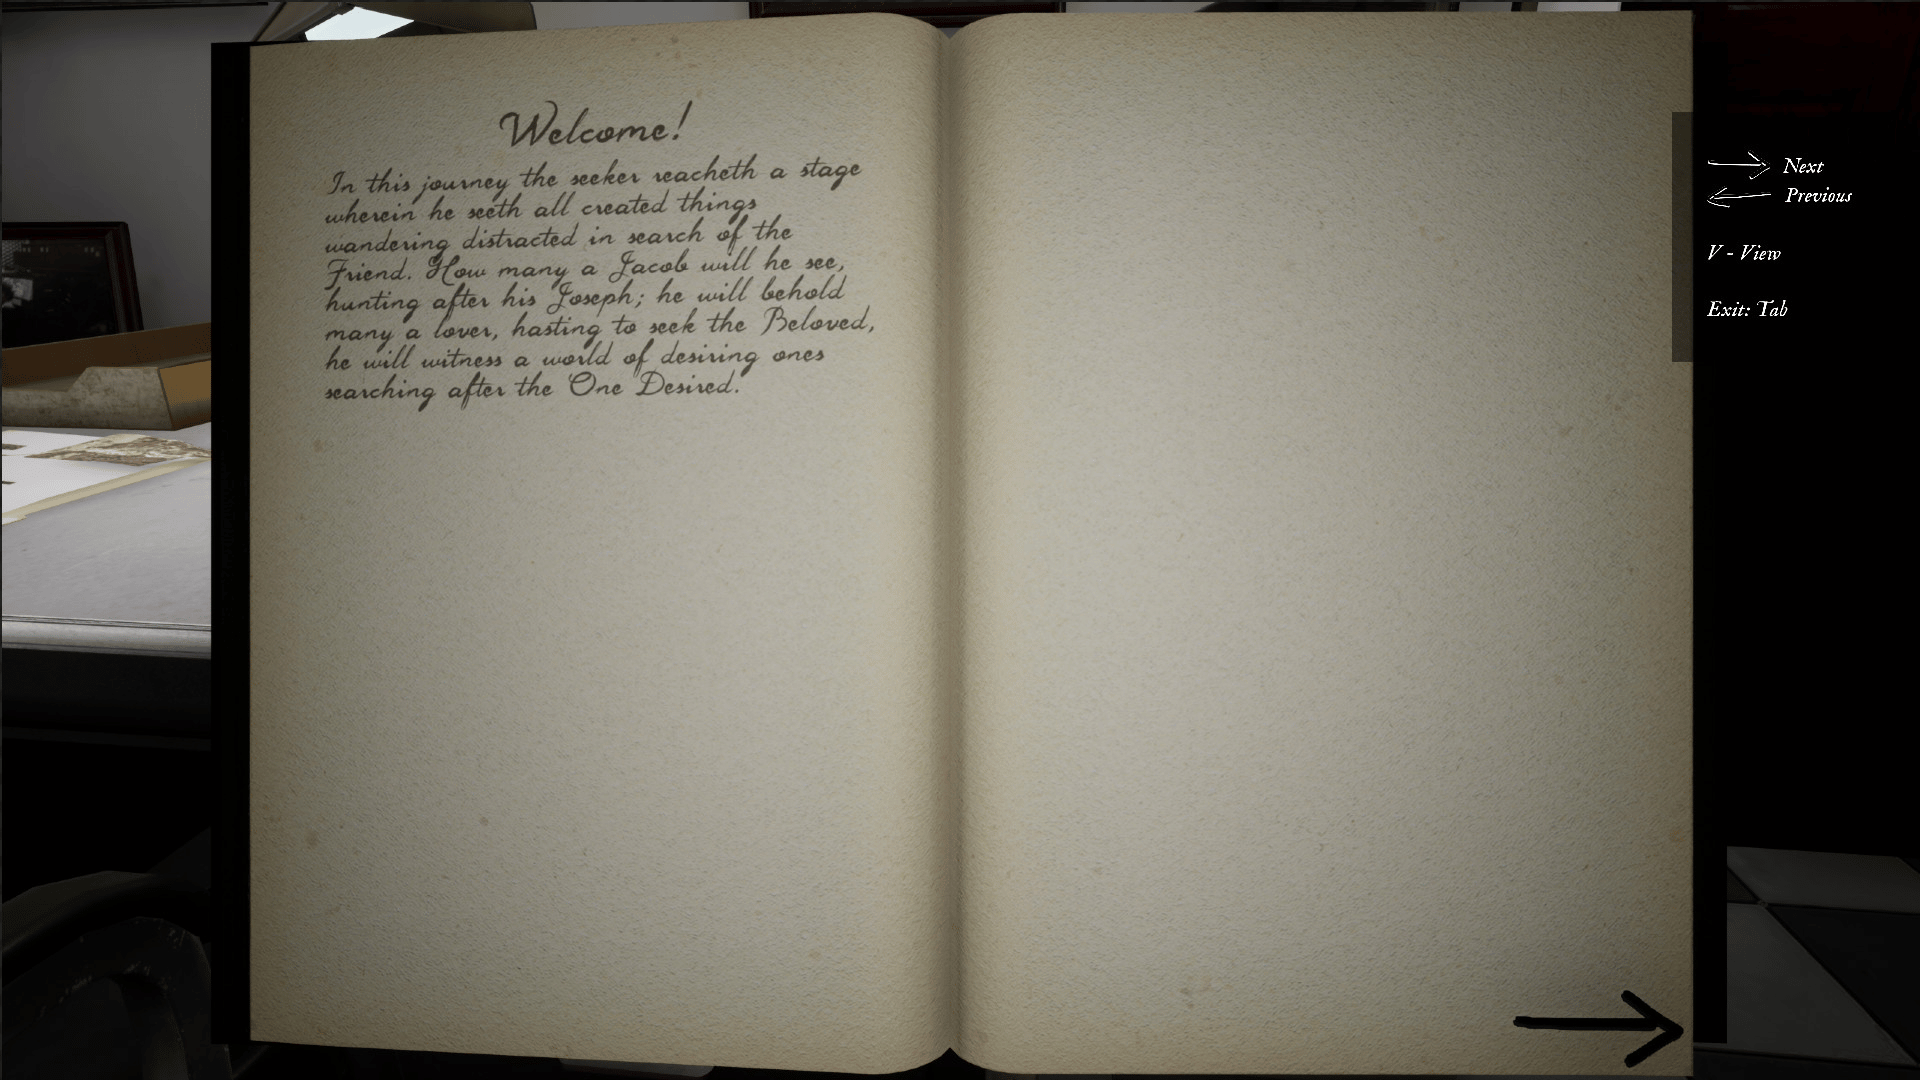 Welcome!
In this journey the seeker reacheth a stage
wherein he seeth all created things
wandering distracted in search of the
Friend. How many a Jacob will he see,
hunting after his Joseph; he will behold
many a lover, hasting to seek the Beloved,
he will witness a world of desiring ones
searching after the One Desired.
Next
Previous
V - View
Exit: Tab